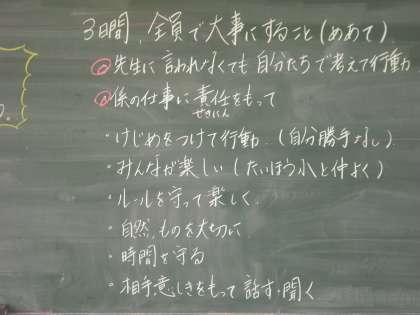 3日間、全員で大事にすること(めあて)
◎先生に言われなくても自分たちで考えて行動
◎係の仕事に責任をもって
せきにん
・けじめをつけて行動(自分勝手なし)
・みんなが楽しい(たいほう小と仲よく)
・ルールを守って楽しく
・自然、ものを大切に
・時間を守る
・相手意しきをもって話す・聞く